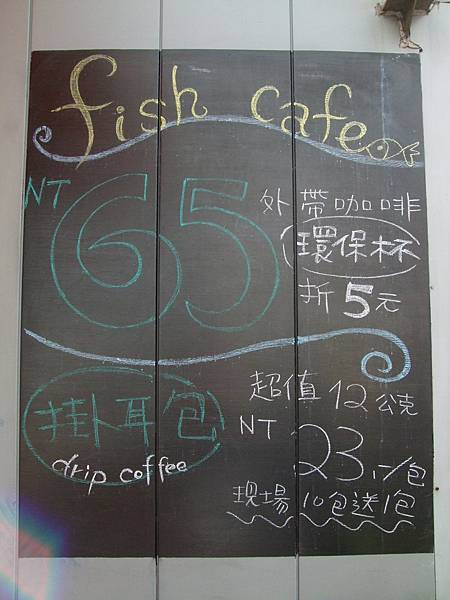 fish cafe
NT 65
外帶咖啡
環保杯
折 5 元
掛耳包
drip coffee
超值 12 公克
NT 23.-/包
現場 10包送1包